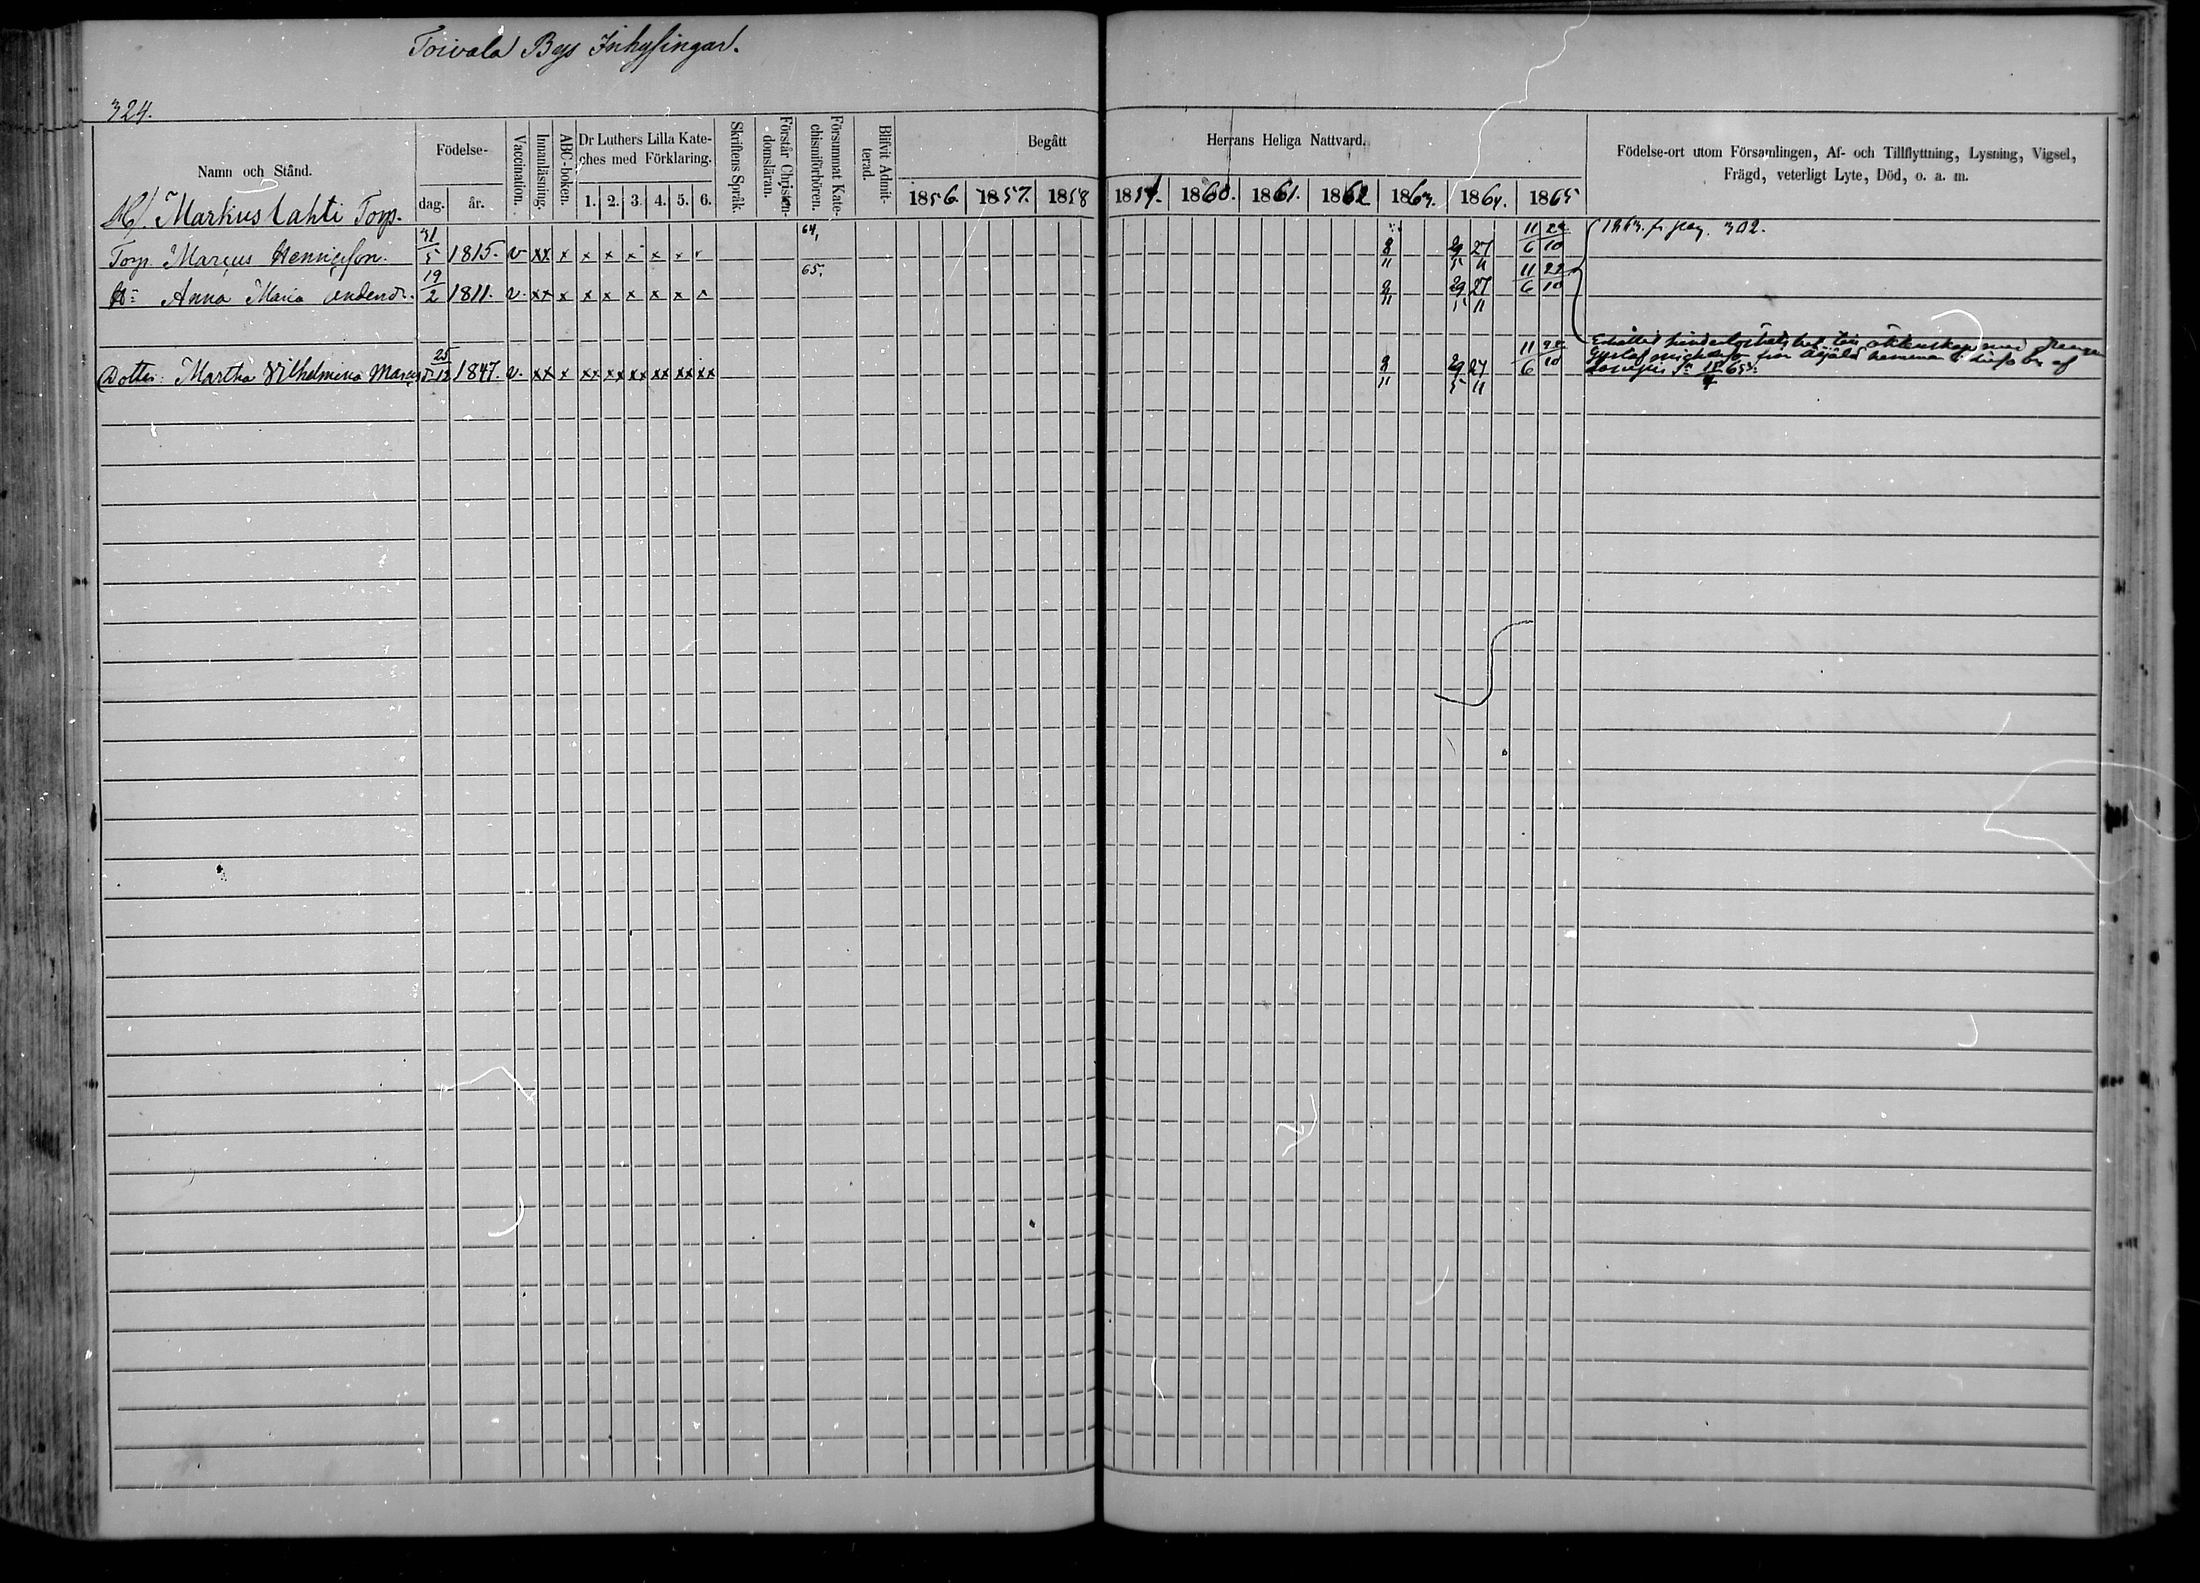 Toivala Bys Inhysingar.
324.
Namn och Stånd.
Födelse-
dag. år.
Vaccination.
Innanläsning.
ABC-boken.
Dr Luthers Lilla Kate-
ches med Förklaring.
1. 2. 3. 4. 5. 6.
Skriftens Språk.
Förstår Christen-
domsläran.
Försummat Kate-
chismiförhören.
Blifvit Admit-
terad.
Begått Herrans Heliga Nattvard.
1856. 1857. 1858 1859. 1860. 1861. 1862 1863. 1864. 1865
Födelse-ort utom Församlingen, Af- och Tillflyttning, Lysning, Vigsel,
Frägd, veterligt Lyte, Död, o. a. m.
Markus Lahti Torp.
Torp. Marcus Henricsson. 31/5 1815. v xx x x x x x x 64, 8/11 29/5 27/11 11/6 22/10 1863. fr pag. 302.
H: Anna Maria Andersdr. 19/2 1811. v. xx x x x x x x 65. 8/11 29/5 27/11 11/6 22/10
Dotter: Martha Wilhelmina 25/12 1847. v. xx x xx xx xx xx xx xx 8/11 29/5 27/11 11/6 22/10